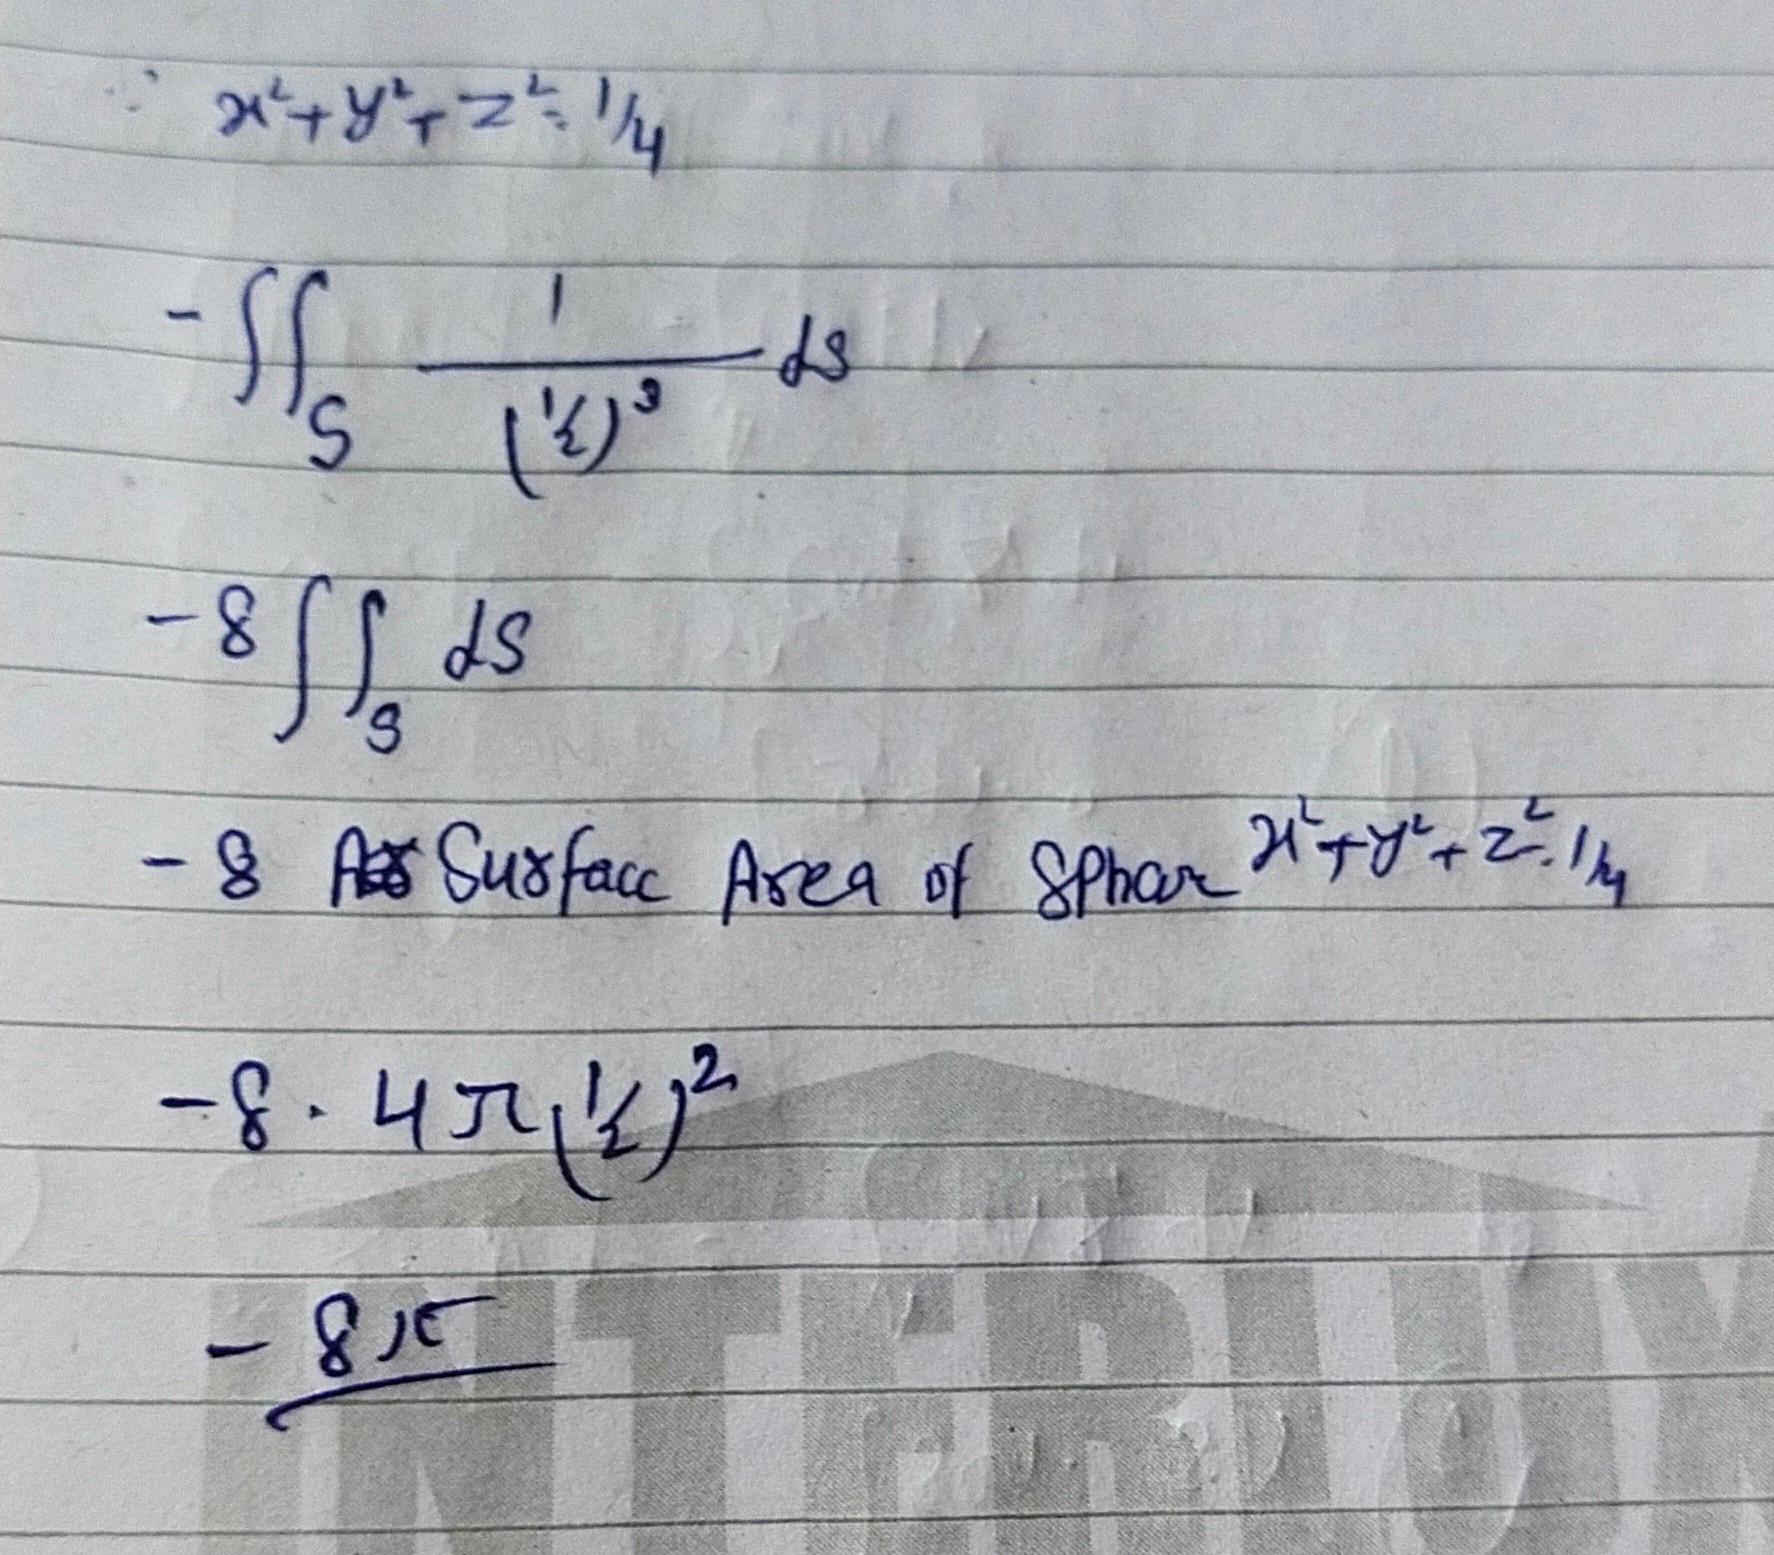 ∵ x²+y²+z²=1/4
-∬_S 1/(1/2)³ dS
-8 ∬_S dS
-8 Surface Area of Sphar x²+y²+z²=1/4
-8 · 4π(1/2)²
-8π
INTERLUX